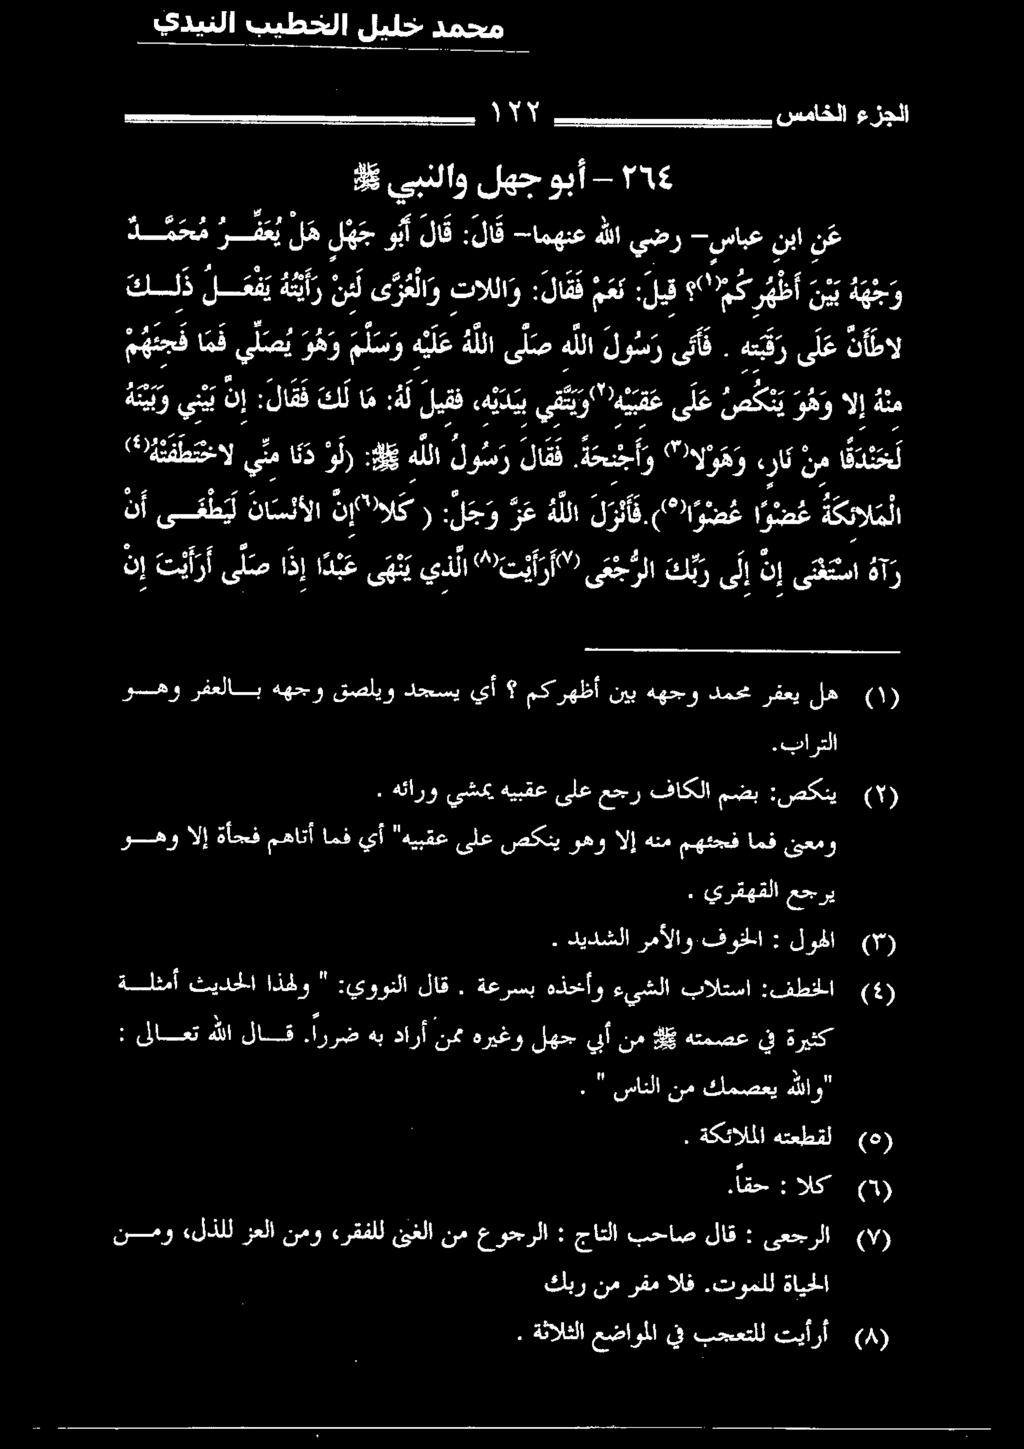 محمد خليل الخطيب النيدي
الجزء الخامس ١٢٢
٢٦٤ – أبو جهل والنبي ﷺ
عَنِ ابنِ عباسٍ– رضي الله عنهما– قَالَ: قَالَ أَبُو جَهْلٍ هَلْ يُعَفِّـرُ مُحَمَّـدٌ
وَجْهَهُ بَيْنَ أَظْهُرِكُمْ(١)؟ قِيلَ: نَعَمْ فَقَالَ: وَاللاتِ وَالْعُزَّى لَئِنْ رَأَيْتُهُ يَفْعَـلُ ذَلِـكَ
لاطَأَنَّ عَلَى رَقَبَتِهِ . فَأَتَى رَسُولَ اللهِ صَلَّى اللَّهُ عَلَيْهِ وَسَلَّمَ وَهُوَ يُصَلِّي فَمَا فَجِئَهُمْ
مِنْهُ إِلا وَهُوَ يَنْكُصُ عَلَى عَقِبَيْهِ(٢)وَيَتَّقِي بِيَدَيْهِ، فقِيلَ لَهُ: مَا لَكَ فَقَالَ: إِنَّ بَيْنِي وَبَيْنَهُ
لَخَنْدَقًا مِنْ نَارٍ، وَهَوْلا(٣) وَأَجْنِحَةً. فَقَالَ رَسُولُ اللهِ ﷺ: (لَوْ دَنَا مِنِّي لاخْتَطَفَتْهُ(٤)
الْمَلائِكَةُ عُضْوًا عُضْوًا(٥)).فَأَنْزَلَ اللَّهُ عَزَّ وَجَلَّ: ( كَلا(٦)إِنَّ الأنْسَانَ لَيَطْغَـى أَنْ
رَآهُ اسْتَغْنَى إِنَّ إِلَى رَبِّكَ الرُّجْعَى(٧)أَرَأَيْتَ(٨) الَّذِي يَنْهَى عَبْدًا إِذَا صَلَّى أَرَأَيْتَ إِنْ
(١) هل يعفر محمد وجهه بين أظهركم ؟ أي يسجد ويلصق وجهه بـالعفر وهـو
التراب.
(٢) ينكص: بضم الكاف رجع على عقبيه يمشي ورائه .
ومعنى فما فجئهم منه إلا وهو ينكص على عقبيه" أي فما أتاهم فجأة إلا وهـو
يرجع القهقري .
(٣) الهول : الخوف والأمر الشديد .
(٤) الخطف: استلاب الشيء وأخذه بسرعة . قال النووي: " ولهذا الحديث أمثلـة
كثيرة في عصمته ﷺ من أبي جهل وغيره ممن أراد به ضرراً. قـال الله تعـالى :
"والله يعصمك من الناس " .
(٥) لقطعته الملائكة .
(٦) كلا : حقاً.
(٧) الرجعى : قال صاحب التاج : الرجوع من الغنى للفقر، ومن العز للذل، ومـن
الحياة للموت. فلا مفر من ربك
(٨) أرأيت للتعجب في المواضع الثلاثة .